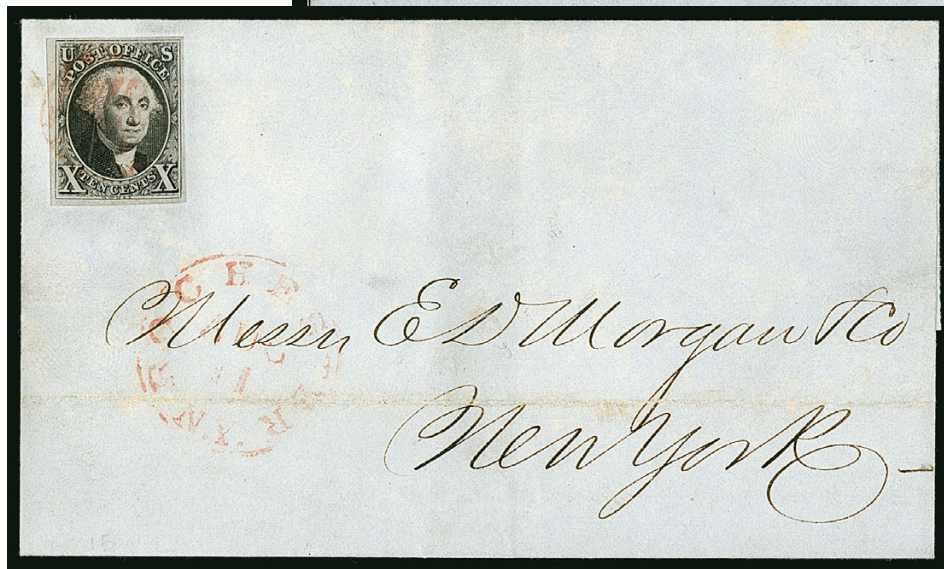 U S
POST OFFICE
X TEN CENTS X
Messrs E D Morgan & Co
New York